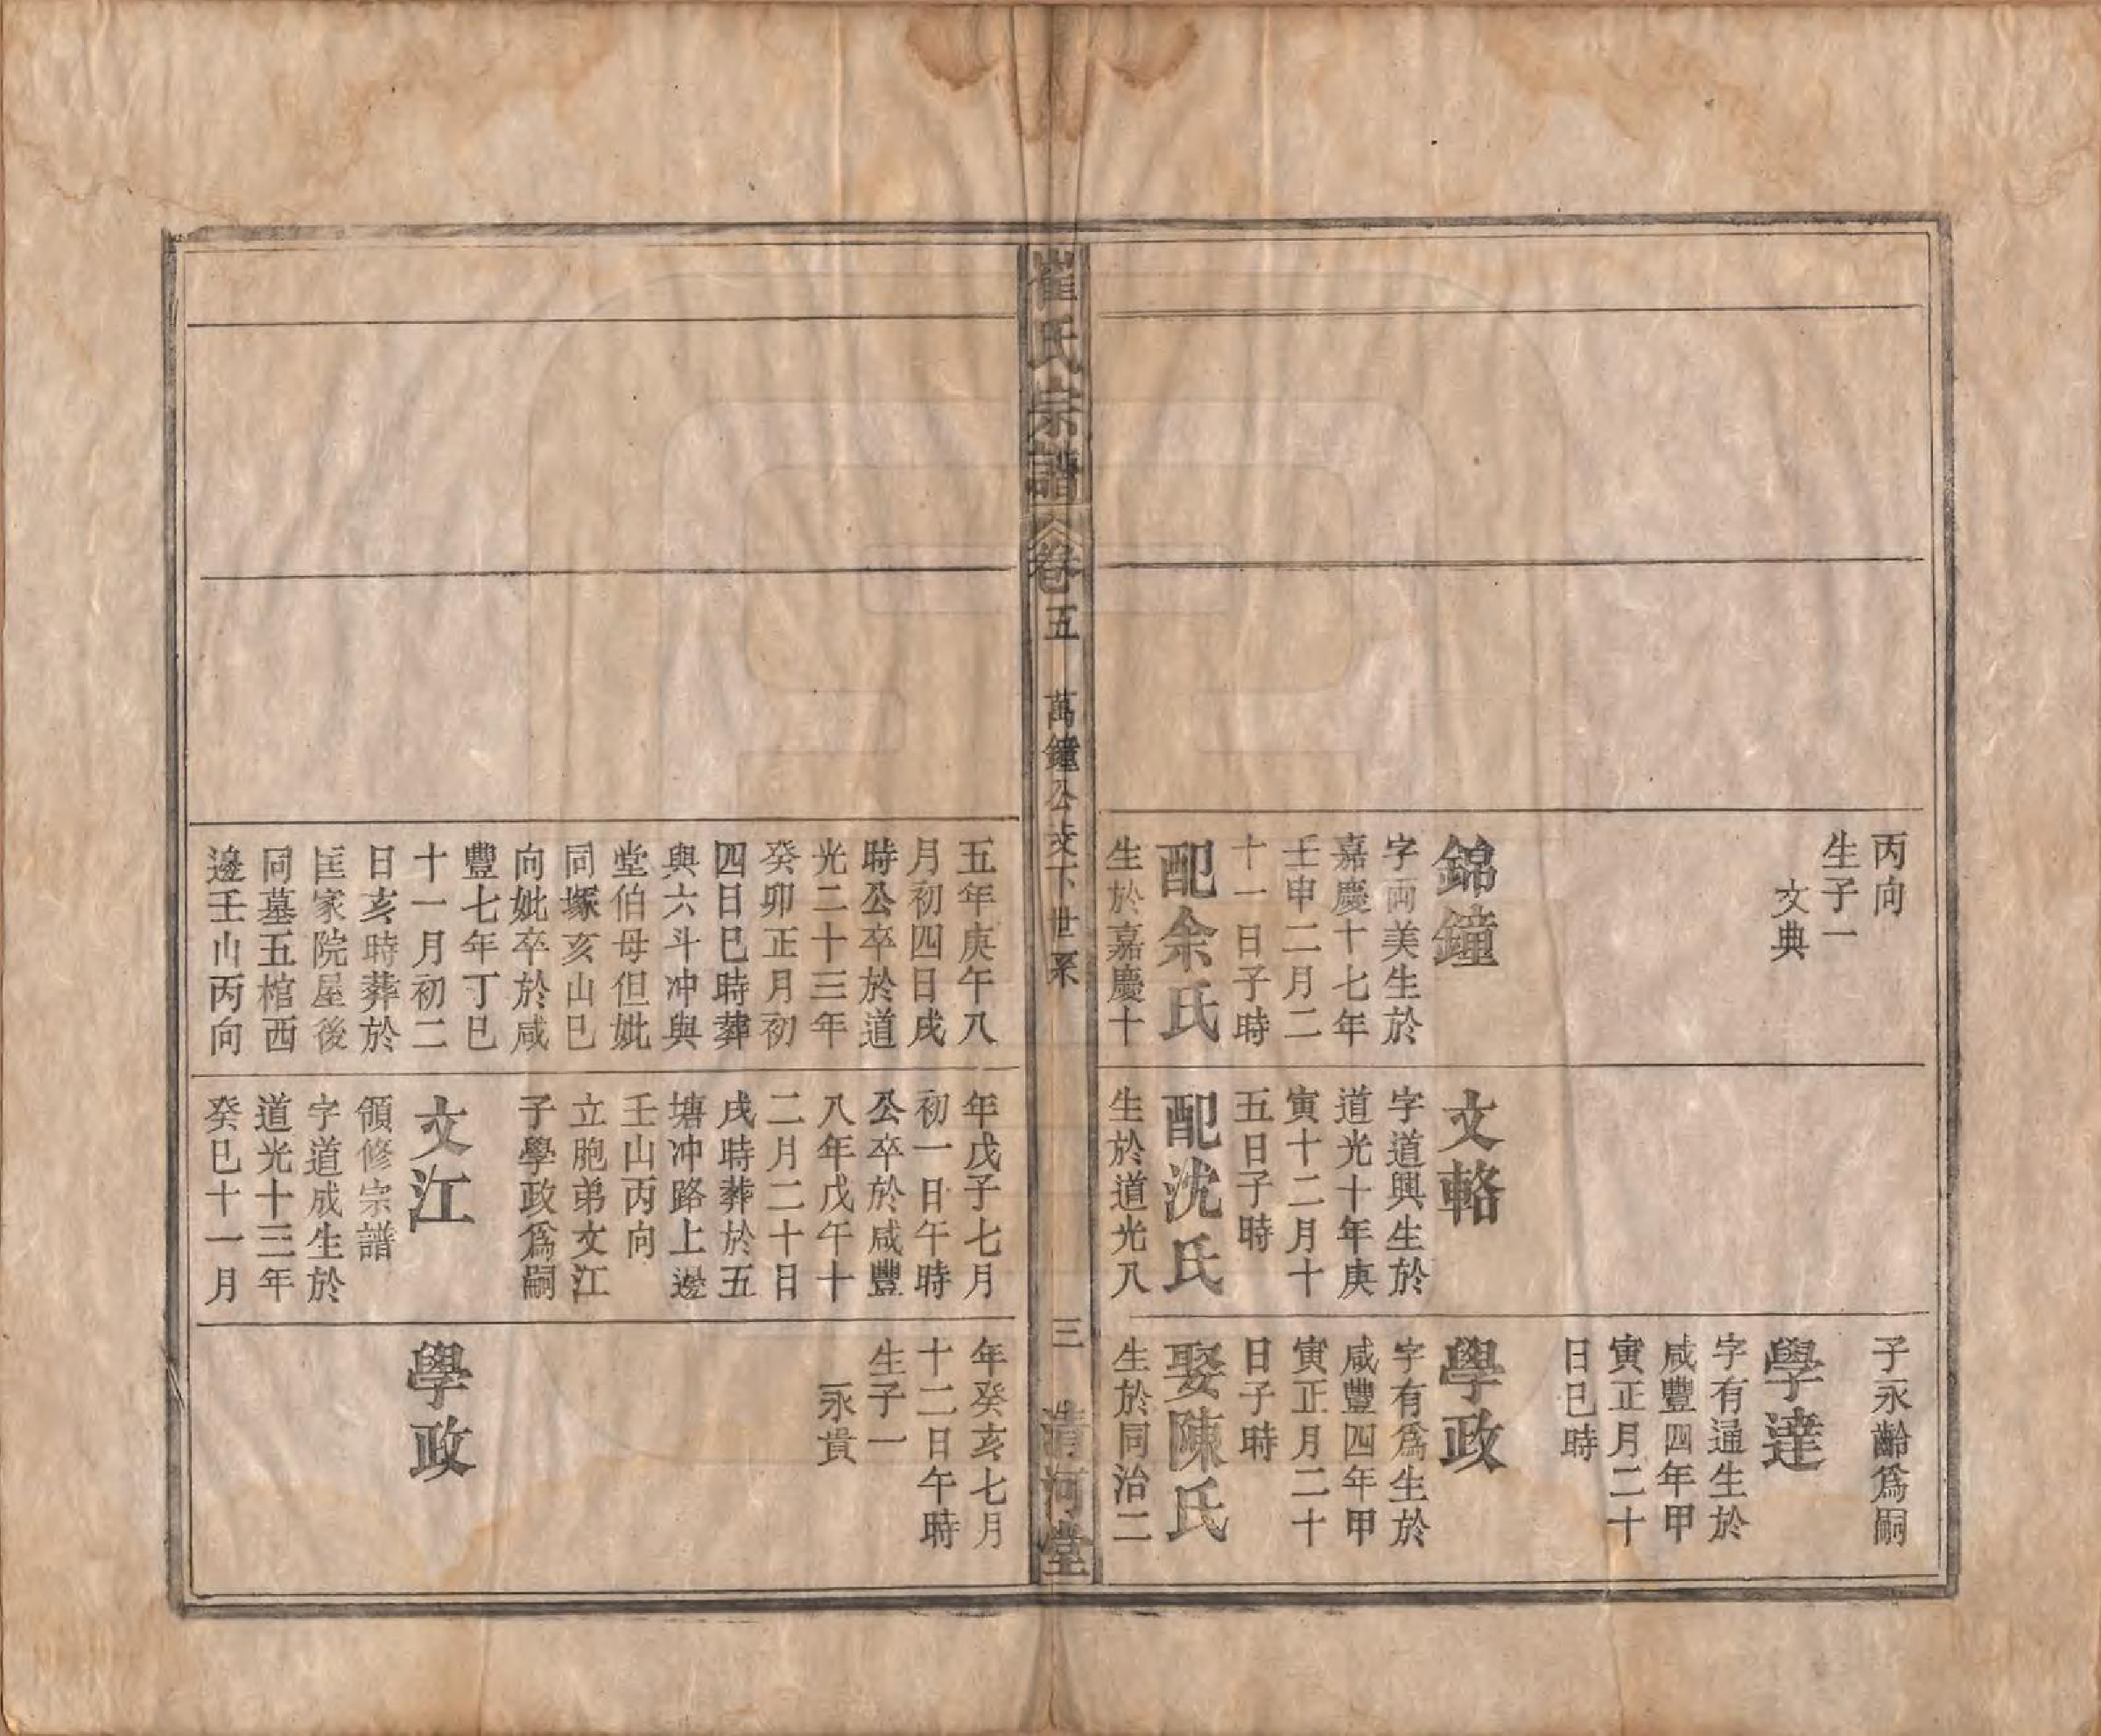 丙向
生子一
文典
錦鐘
字両美生於
嘉慶十七年
壬申二月二
十一日子時
配余氏
生於嘉慶十
文輅
字道興生於
道光十年庚
寅十二月十
五日子時
配沈氏
生於道光八
子永齡爲嗣
學達
字有通生於
咸豐四年甲
寅正月二十
日巳時
學政
字有爲生於
咸豐四年甲
寅正月二十
日子時
娶陳氏
生於同治二
崔氏宗譜
卷五
萬鐘公支下世系
三
清河堂
五年庚午八
月初四日戌
時公卒於道
光二十三年
癸卯正月初
四日巳時葬
與六斗冲與
堂伯母但妣
同塚亥山巳
向妣卒於咸
豐七年丁巳
十一月初二
日亥時葬於
匡家院屋後
同墓五棺西
邊壬山丙向
年戊子七月
初一日午時
公卒於咸豐
八年戊午十
二月二十日
戌時葬於五
塘冲路上邊
壬山丙向
立胞弟文江
子學政爲嗣
文江
領修宗譜
字道成生於
道光十三年
癸巳十一月
年癸亥七月
十二日午時
生子一
永貴
學政